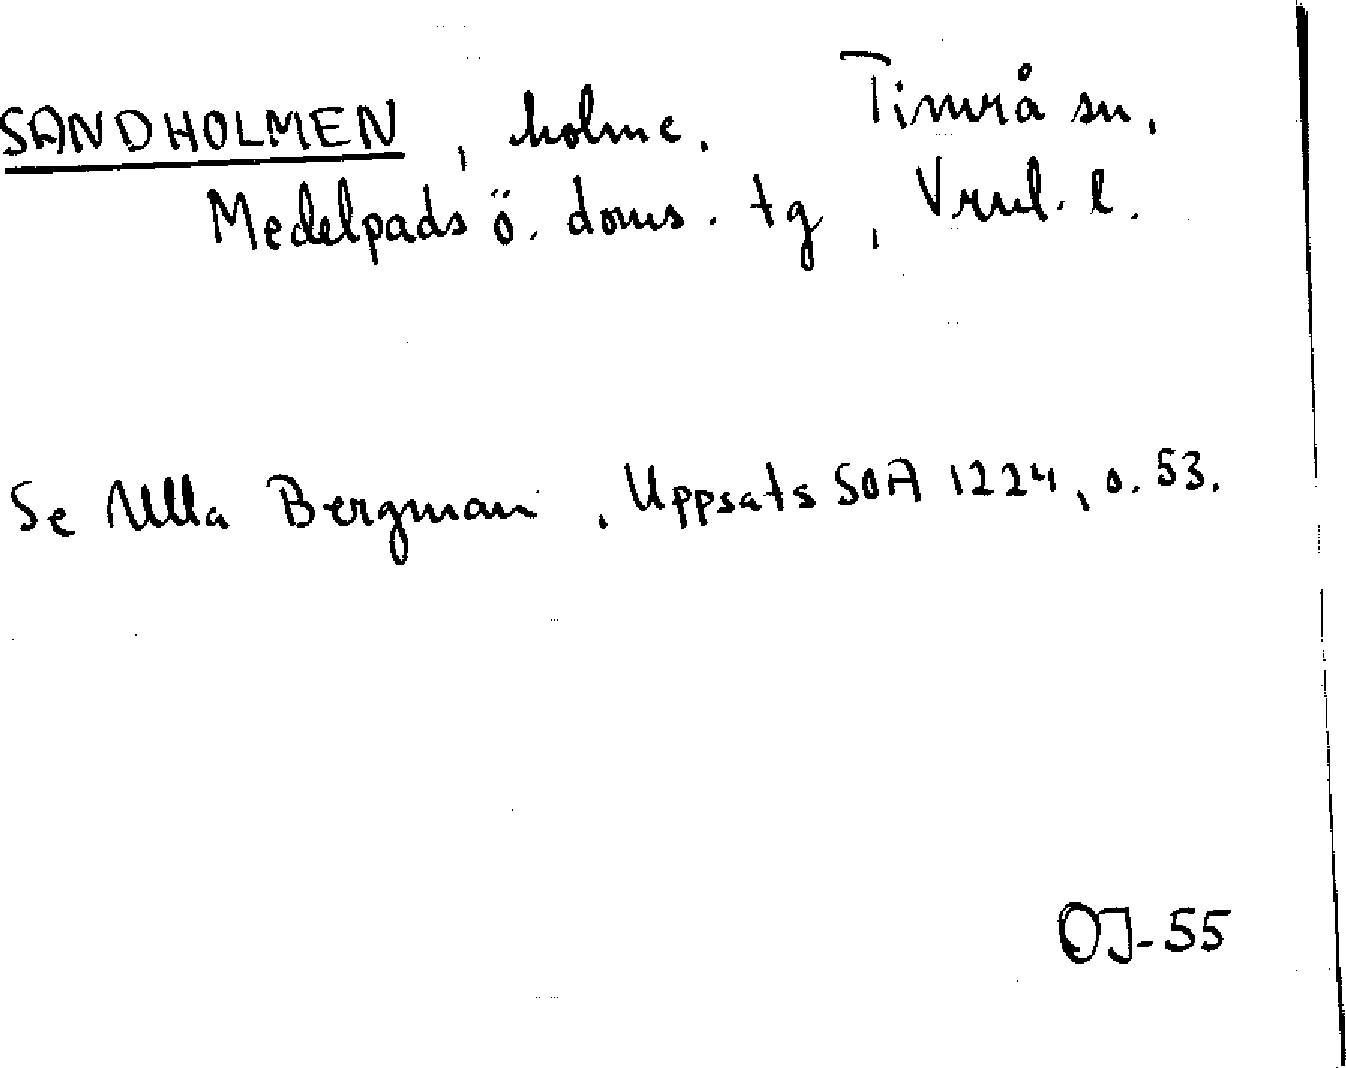 SANDHOLMEN, holme. Timrå sn.
Medelpads ö. doms. tg, Vnrl. l.
Se Ulla Bergman, Uppsats SOA 1224, s. 53.
OJ-55